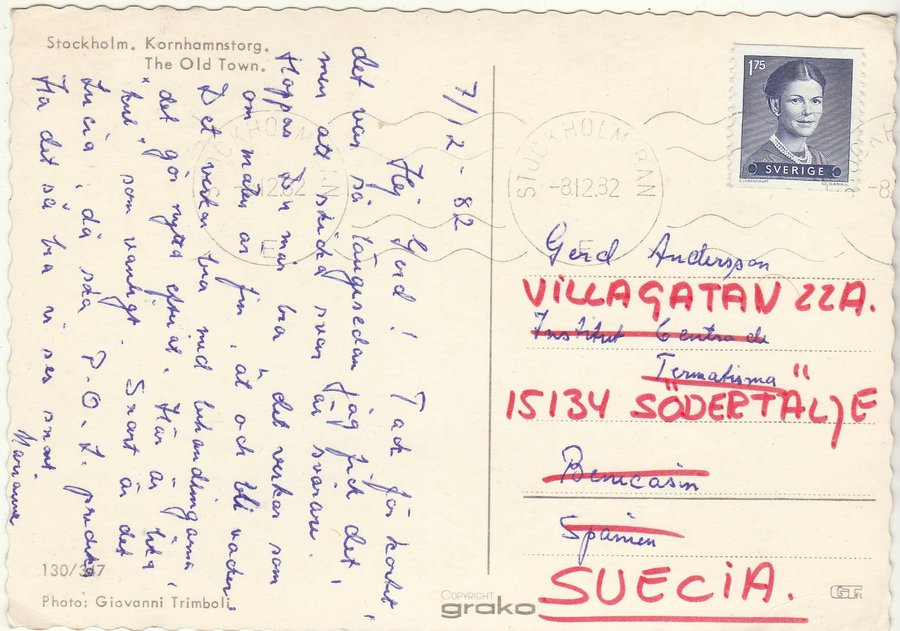 Stockholm. Kornhamnstorg.
The Old Town.
7/12 - 82
Hej Gerd! Tack för kortet,
det var så längesedan jag fick det,
men att skicka svar är svårare.
Hoppas Du mår bra, det verkar som
om maten är fin, ät och bli vacker.
Det verkar bra med behandlingarna,
det gör nytta efteråt. Här är lika
"kul" som vanligt. Snart är det
Lucia, då ska P-O.L.
Ha det så bra vi ses snart
Marianne
130/347
Photo: Giovanni Trimboli
COPYRIGHT
grako
1.75
SVERIGE
STOCKHOLM BAN
-8.12.82
E
STOCKHOLM BAN
-8.12.82
E
-8
Gerd Andersson
VILLAGATAN 22A.
Institut Centro de
Termatisma
15134 SÖDERTALJE
Benicasin
Spanien
SUECIA.